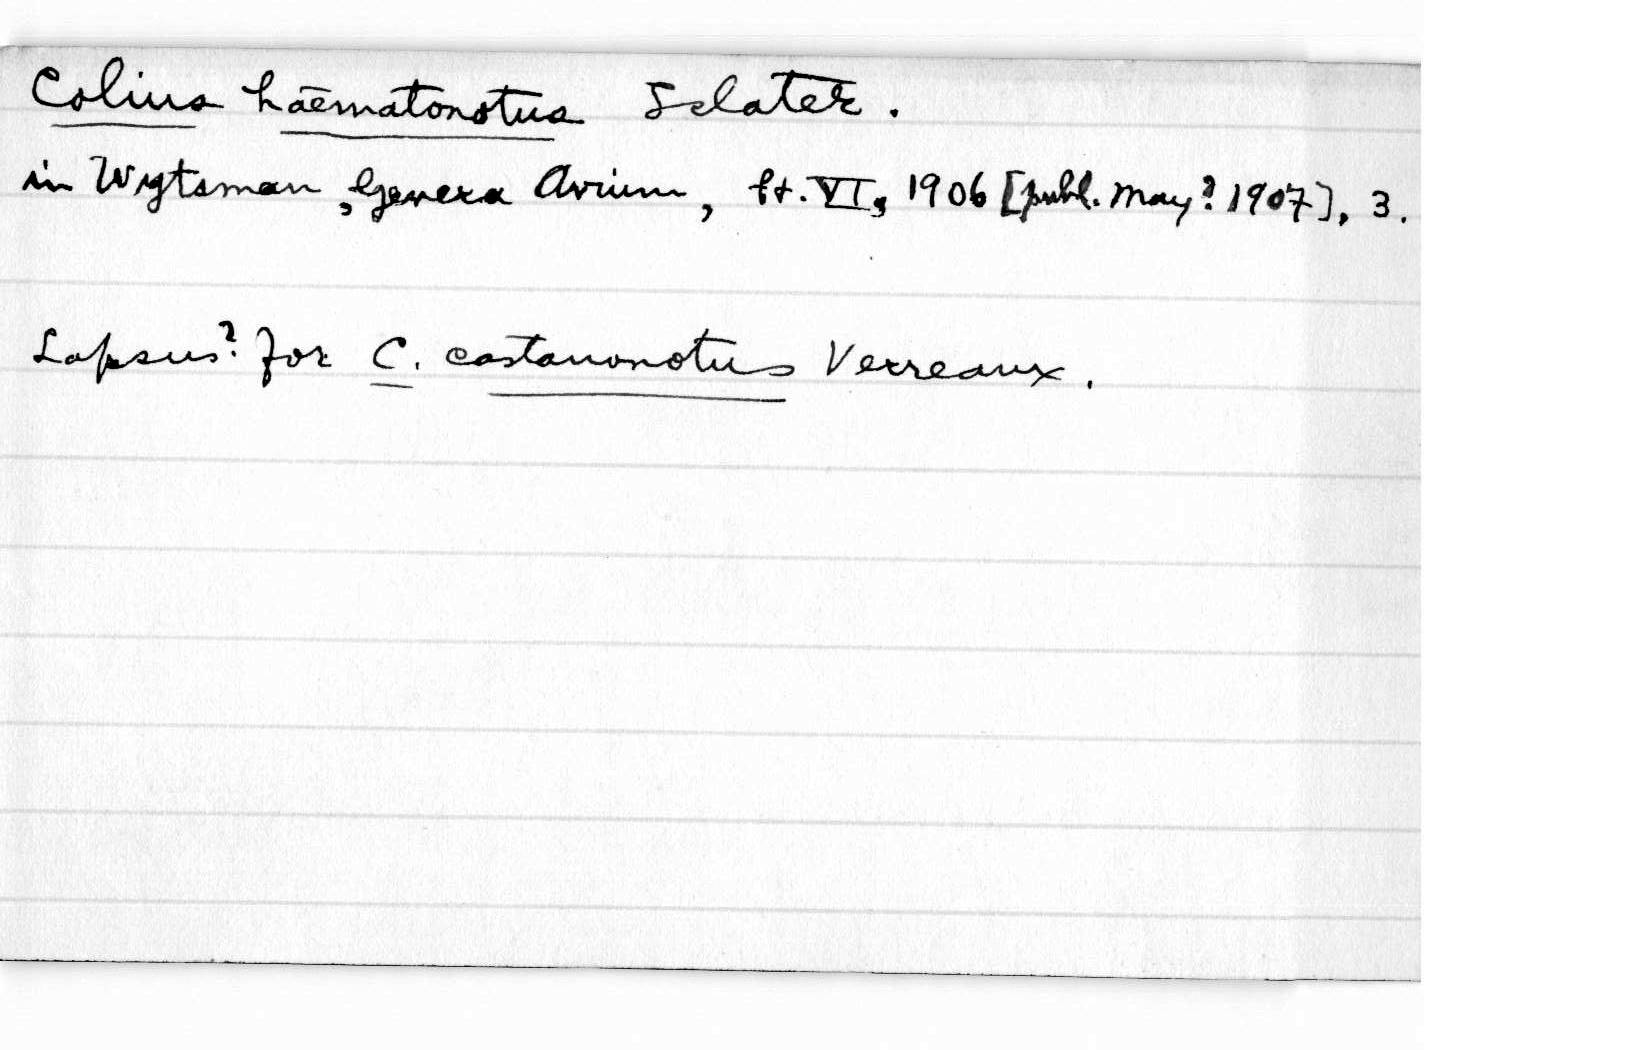 Colius haematonotus Sclater.
in Wytsman, Genera Avium, pt. VI, 1906 [publ. May? 1907], 3.
Lapsus? for C. castanonotus Verreaux.